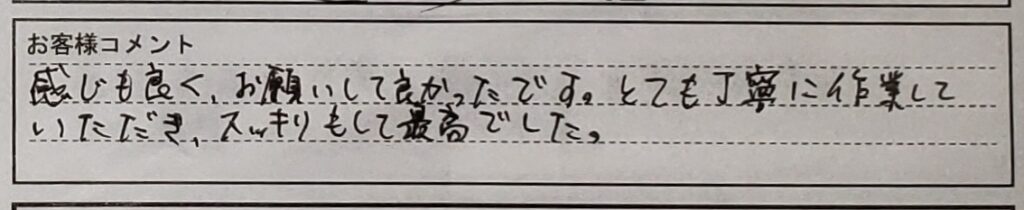 お客様コメント
感じも良く、お願いして良かったです。とても丁寧に作業して
いただき、スッキリもして最高でした。